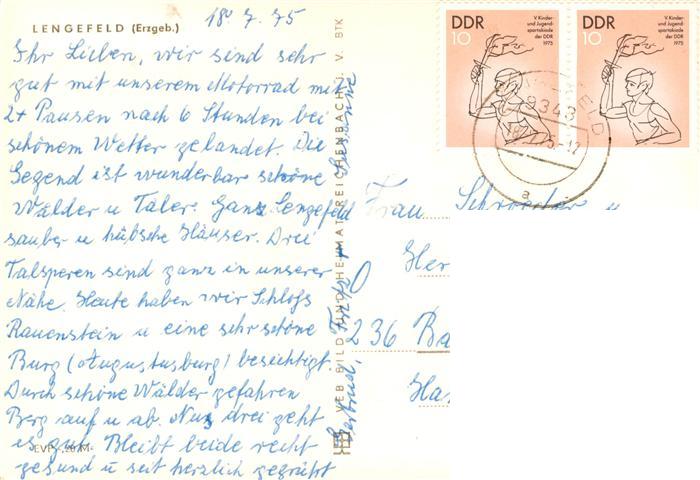 LENGEFELD (Erzgeb.)
18. 7. 75
Ihr Lieben, wir sind sehr
gut mit unserem Motorrad mit
2 Pausen nach 6 Stunden bei
schönem Wetter gelandet. Die
Gegend ist wunderbar schöne
Wälder u Täler. Ganz Lengefeld
sauber u hübsche Häuser. Drei
Talsperen sind ganz in unserer
Nähe. Heute haben wir Schloss
Rauenstein u eine sehr schöne
Burg (Augustusburg) besichtigt.
Durch schöne Wälder gefahren
Berg auf u ab. Uns drei geht
es gut. Bleibt beide recht
gesund u seit herzlich gegrüßt
Gertrud,
VEB BILD UND HEIMAT REICHENBACH I. V. BTK
DDR
10
V. Kinder-
und Jugend-
spartakiade
der DDR
1975
DDR
10
V. Kinder-
und Jugend-
spartakiade
der DDR
1975
9343
a
Frau
236